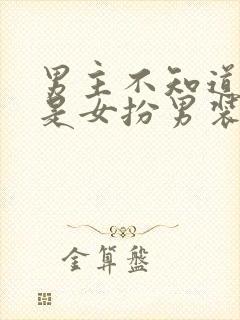 男主不知道
是女扮男装
金算盘